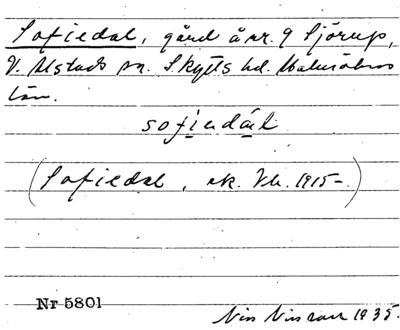 Sofiedal, gård å nr. 9 Sjörup,
V. Alstads sn. Skytts hd. Malmöhus
län.
sofiedál
(Sofiedal, ek. kb. 1915-)
Nr 5801
Nils Nilsson 1935.